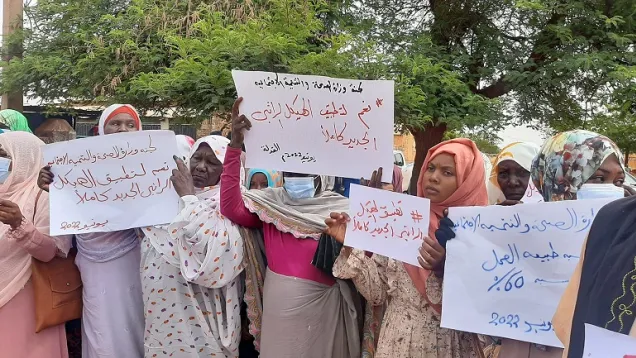 لجنة وزارة الصحة والتنمية الاجتماعية
نعم لتطبيق الهيكل
الراتبي الجديد كاملاً
يونيو 2022
لجنة وزارة الصحة والتنمية الاجتماعية
# نعم لتطبيق الهيكل الراتبي
الجديد كاملاً
يونيو 2022م
#
تطبيق الهيكل
الراتبي الجديد كاملاً
وزارة الصحة والتنمية الاجتماعية
طبيعة العمل
60%
2022